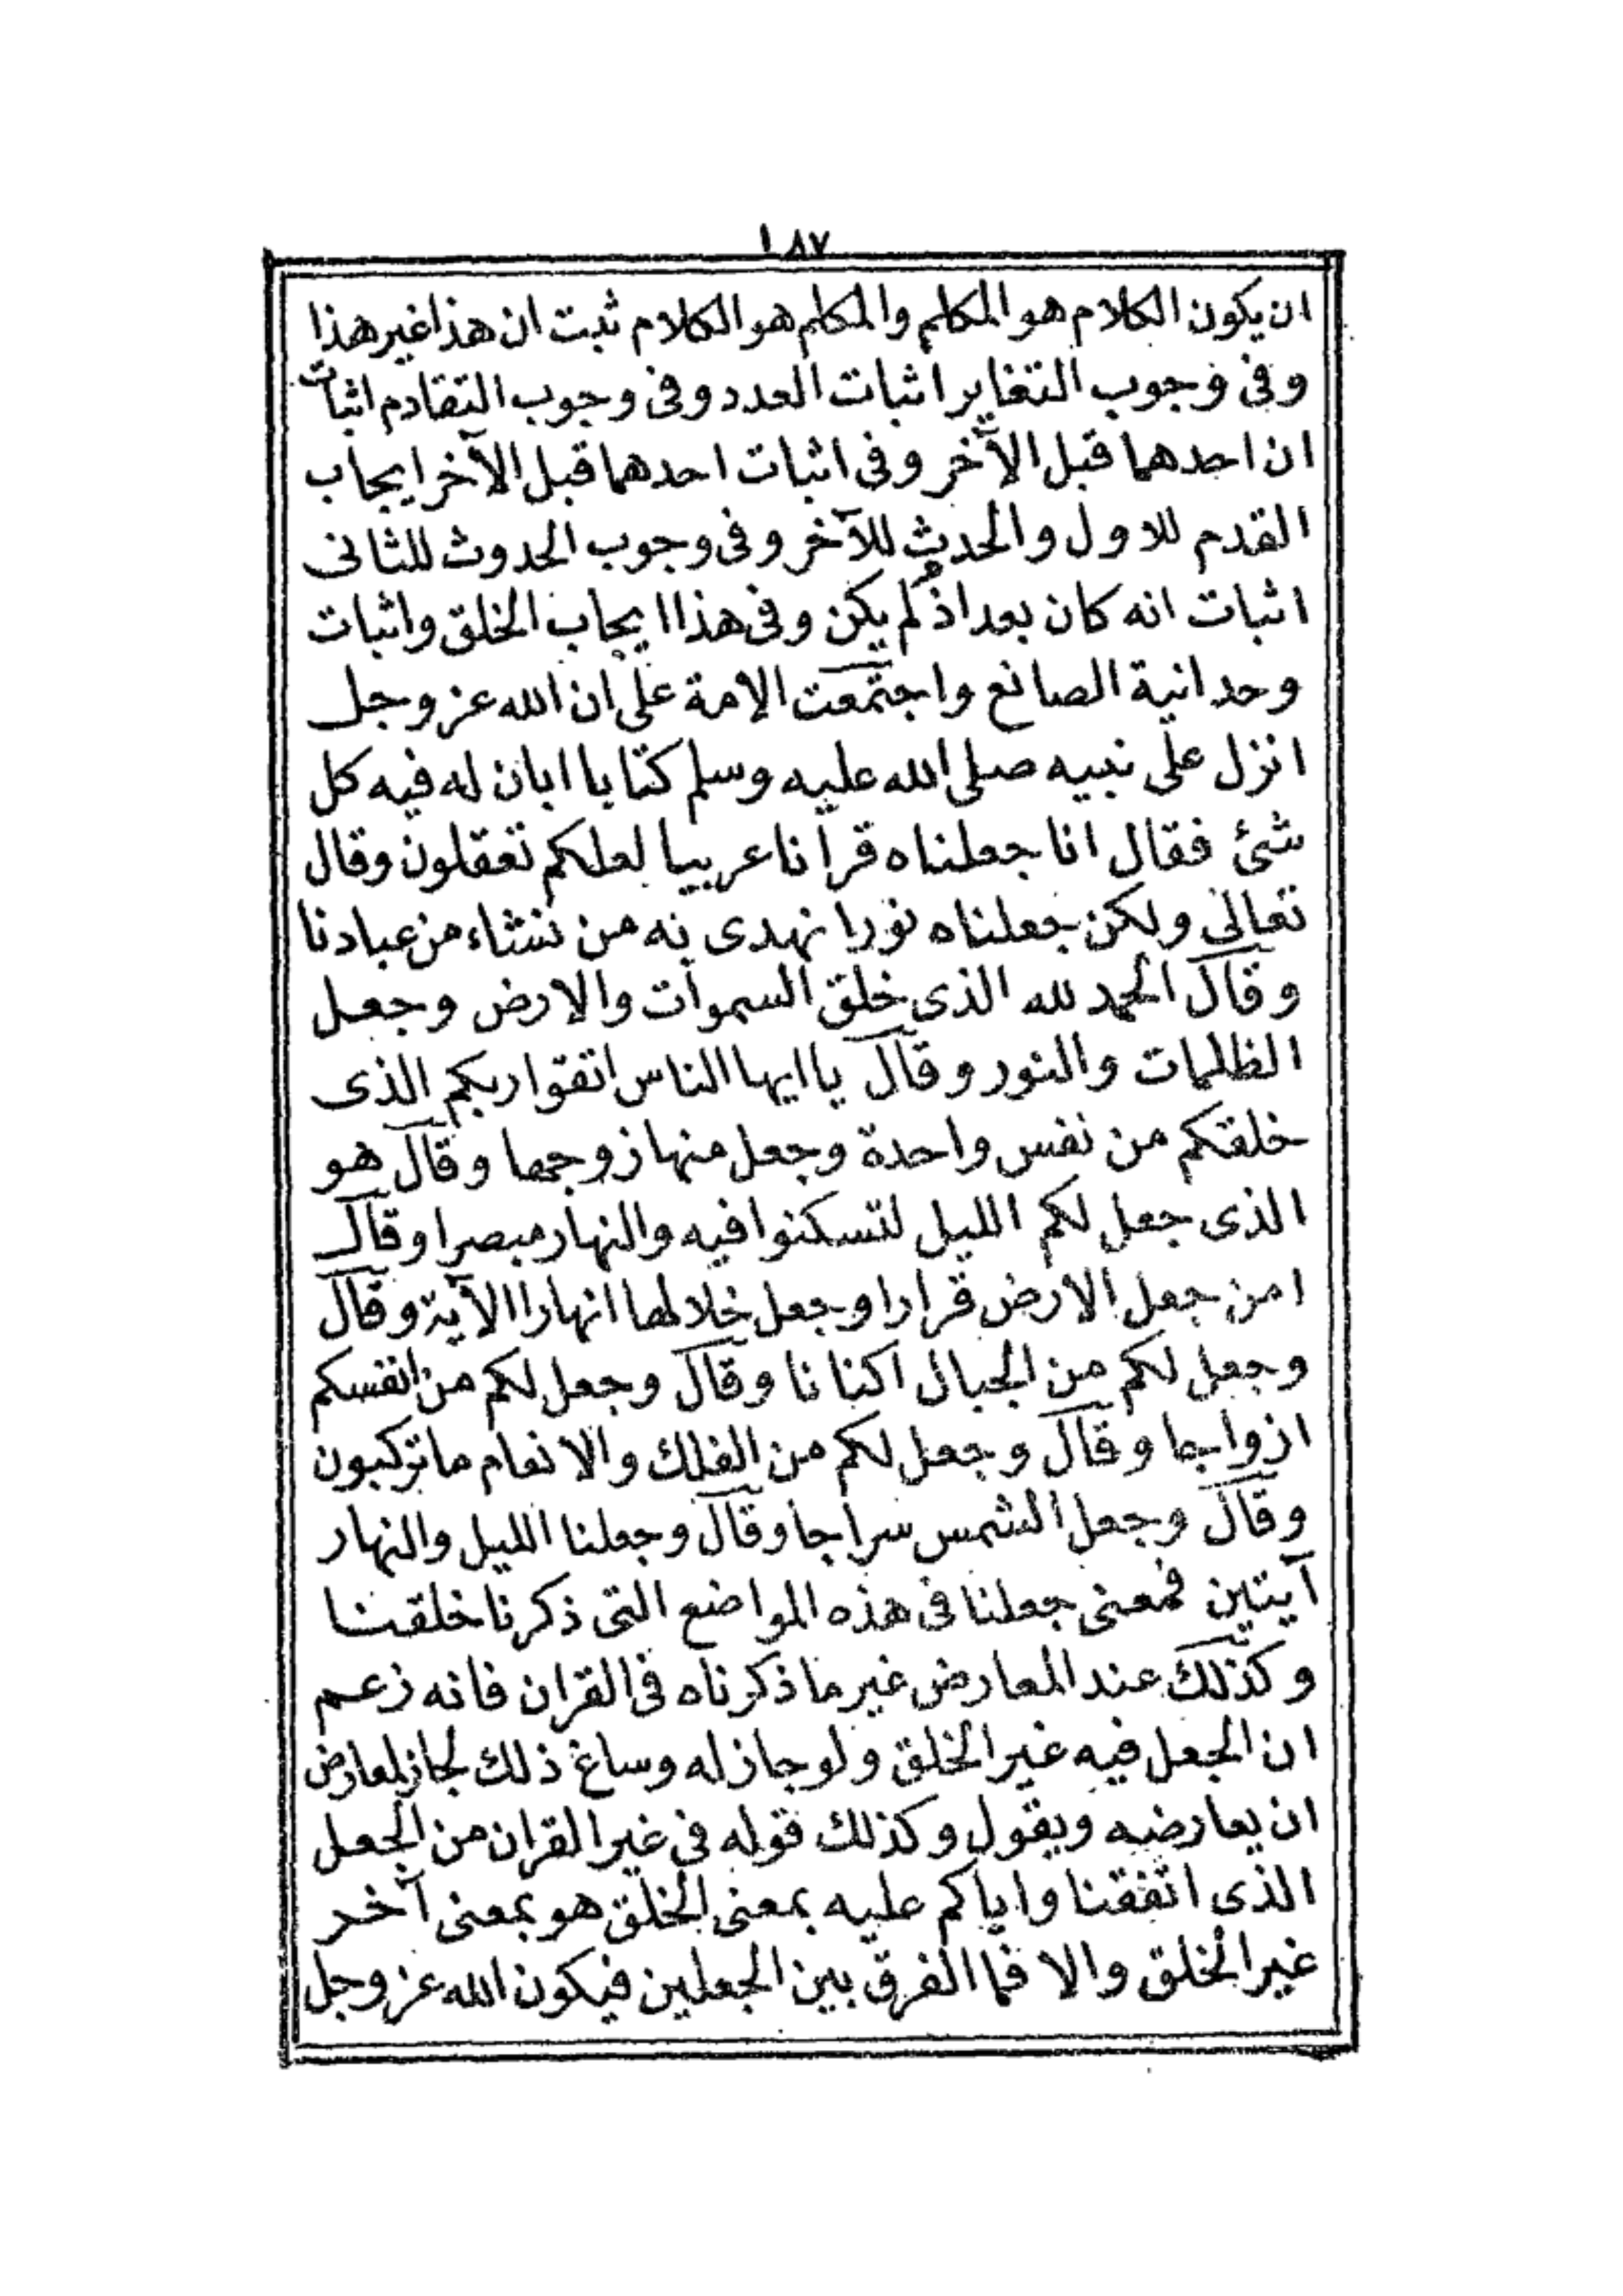 ١٨٧
ان يكون الكلام هو المكلم والمكلم هو الكلام ثبت ان هذا غير هذا
وفى وجوب التغاير اثبات العدد وفى وجوب التقادم اثبات
ان احدهما قبل الآخر وفى اثبات احدهما قبل الآخر ايجاب
القدم للاول والحدث للآخر وفى وجوب الحدوث للثانى
اثبات انه كان بعد اذ لم يكن وفى هذا ايجاب الخلق واثبات
وحدانية الصانع واجتمعت الامة على ان الله عز وجل
انزل على نبيه صلى الله عليه وسلم كتابا ابان له فيه كل
شئ فقال انا جعلناه قرانا عربيا لعلكم تعقلون وقال
تعالى ولكن جعلناه نورا نهدى به من نشاء من عبادنا
وقال الحمد لله الذى خلق السموات والارض وجعل
الظلمات والنور وقال ياايها الناس اتقوا ربكم الذى
خلقكم من نفس واحدة وجعل منها زوجها وقال هو
الذى جعل لكم الليل لتسكنوا فيه والنهار مبصرا وقال
امن جعل الارض قرارا وجعل خلالها انهارا الآية وقال
وجعل لكم من الجبال اكنانا وقال وجعل لكم من انفسكم
ازواجا وقال وجعل لكم من الفلك والانعام ما تركبون
وقال وجعل الشمس سراجا وقال وجعلنا الليل والنهار
آيتين فمعنى جعلنا فى هذه المواضع التى ذكرنا خلقنا
وكذلك عند المعارض غير ما ذكرناه فى القران فانه زعم
ان الجعل فيه غير الخلق ولو جاز له وساغ ذلك لجاز لمعارض
ان يعارضه ويقول وكذلك قوله فى غير القران من الجعل
الذى اتفقنا واياكم عليه بمعنى الخلق هو بمعنى آخر
غير الخلق والا فما الفرق بين الجعلين فيكون الله عز وجل